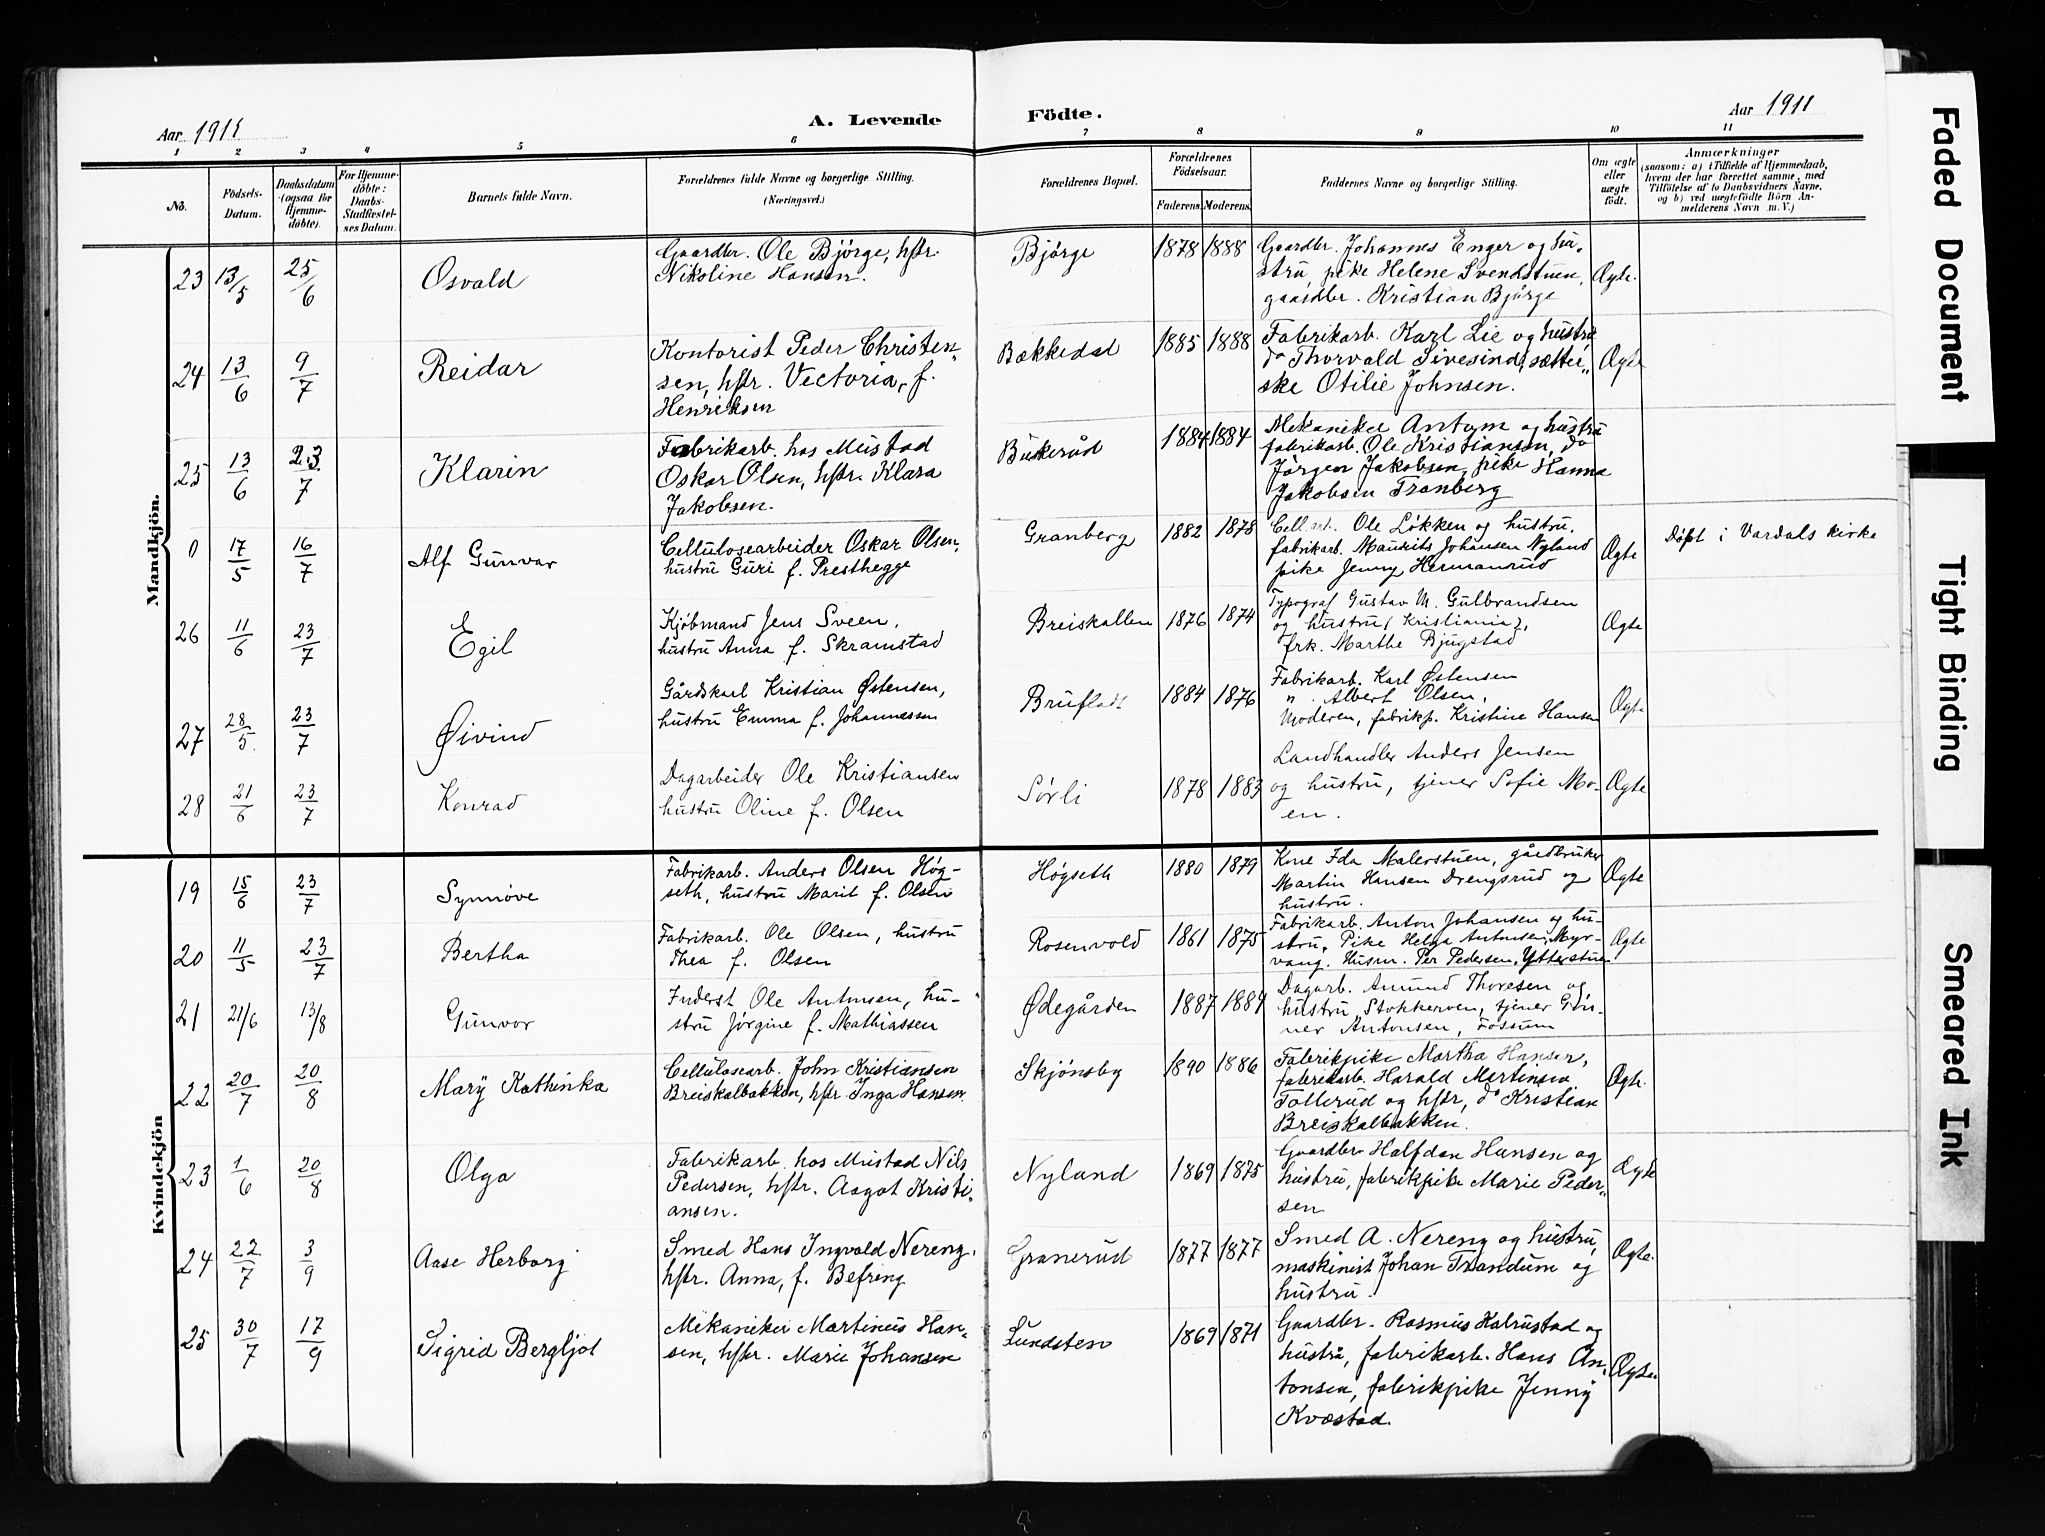 Aar 1911
A. Levende Födte.
Aar 1911
1 2 3 4 5 6 7 8 9 10 11
No.
Födsels-Datum.
Daabsdatum (ogsaa for Hjemme-döbte).
For Hjemme-döbte: Daabs-Stadfæstel-ses Datum.
Barnets fulde Navn.
Forældrenes fulde Navne og borgerlige Stilling.
(Næringsvei.)
Forældrenes Bopæl.
Forældrenes Födselsaar.
Faderens. Moderens.
Faddernes Navne og borgerlige Stilling.
Om ægte eller uægte födt.
Anmærkninger
(saasom: a) i Tilfælde af Hjemmedaab,
hvem der har forrettet samme, med
Tilföielse af to Daabsvidners Navne,
og b) ved uægtefödte Börn An-
melderens Navn m. V.)
Mandkjön.
23 13/5 25/6 Osvald
Gaardbr. Ole Bjørge, hstr.
Nikoline Hansen.
Bjørge 1878 1888
Gaardbr. Johannes Enger og hu-
stru, pike Helene Svendstuen,
gaardbr. Kristian Bjørge
Ægte.
24 13/6 9/7 Reidar
Kontorist Peder Christen-
sen, hstr. Vectoria, f.
Henriksen
Bækkedal 1885 1888
Fabrikarb. Karl Lie og hustru
do Thorvald Sivesind, sætter-
ske Otilie Johnsen.
Ægte
25 13/6 23/7 Klarin
Fabrikarb. hos Mustad
Oskar Olsen, hstr. Klara
Jakobsen.
Buskerud 1884 1884
Mekaniker Antom og hustru
fabrikarb. Ole Kristiansen, do
Jørgen Jakobsen, pike Hanna
Jakobsen Tranberg
0 17/5 16/7 Alf Gunvar
Cellulosearbeider Oskar Olsen,
hustru Guri f. Presthegge
Granberg 1882 1878
Cell.arb. Ole Løkken og hustru,
fabrikarb. Maurits Johansen Nyland
pike Jenny Hermanrud
Ægte
Døpt i Vardals kirke
26 11/6 23/7 Egil
Kjøbmand Jens Sveen,
hustru Anna f. Skramstad
Breiskallen 1876 1874
Typograf Gustav M. Gulbrandsen
og hustru (Kristiania),
frk. Marthe Bjugstad
Ægte
27 28/5. 23/7 Øivind
Gårdskarl Kristian Østensen,
hustru Emma f. Johannessen
Brufladt 1884 1876
Fabrikarb. Karl Østensen
" Albert Olsen,
Moderen, fabrikp. Kristine Hansen
Ægte
28 21/6 23/7 Konrad
Dagarbeider Ole Kristiansen
hustru Oline f. Olsen
Sørli 1878 1883
Landhandler Anders Jensen
og hustru, tjener Sofie Mo-
en.
Ægte
Kvindekjön
19 15/6 23/7 Synnøve
Fabrikarb. Anders Olsen Høg-
seth, hustru Marit f. Olsen
Høgseth 1880 1879
Kone Ida Malerstuen, gårdbruker
Martin Hansen Drengsrud og
hustru.
Ægte
20 11/5 23/7 Bertha
Fabrikarb. Ole Olsen, hustru
Thea f. Olsen
Rosenvold 1861 1875
Fabrikarb. Anton Johansen og hu-
stru. Pike Helga Antonsen, Myr-
vang. Husm. Per Pedersen, Ytterstuen
Ægte
21 21/6 13/8 Gunvor
Inderst Ole Antonsen, hu-
stru Jørgine f. Mathiassen
Ødegården 1887 1884
Dagarb. Amund Thoresen og
hustru, Stokkerven, tjener Gun-
ner Antonsen, Fossum
22 20/7 20/8 Mary Kathinka
Cellulosearb. John Kristiansen
Breiskalbakken, hstr. Inga Hansen.
Skjønsby 1890 1886
Fabrikpike Martha Hansen,
fabrikarb. Harald Martinsen
Tollerud og hstr, do Kristian
Breiskalbakken.
Ægte.
23 1/6 20/8 Olga
Fabrikarb. hos Mustad Nils
Pedersen, hstr. Aagot Kristi-
ansen.
Nyland 1869 1875
Gaardbr. Halfdan Hansen og
hustru, fabrikpike Marie Peder-
sen
Ægte
24 22/7 3/9 Aase Herborg
Smed Hans Ingvald Nereng,
hstr. Anna, f. Befring
Granerud 1877 1877
Smed A. Nereng og hustru,
maskinist Johan Trandum og
hustru.
Ægte.
25 30/7 17/9 Sigrid Bergljot
Mekaniker Martinus Han-
sen, hstr. Marie Johansen
Lundsten 1869 1871
Gaardbr. Rasmus Kalrustad og
hustru, fabrikarb. Hans An-
tonsen, fabrikpike Jenny
Kvæstad.
Ægte.
Faded Document
Tight Binding
Smeared Ink